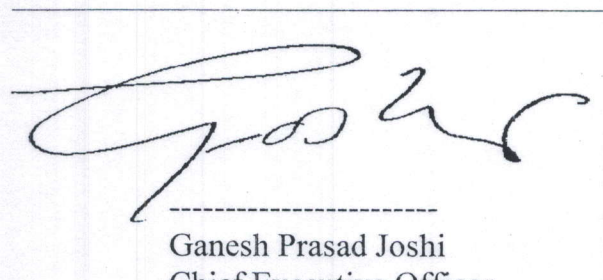 Ganesh Prasad Joshi
Chief Executive Officer